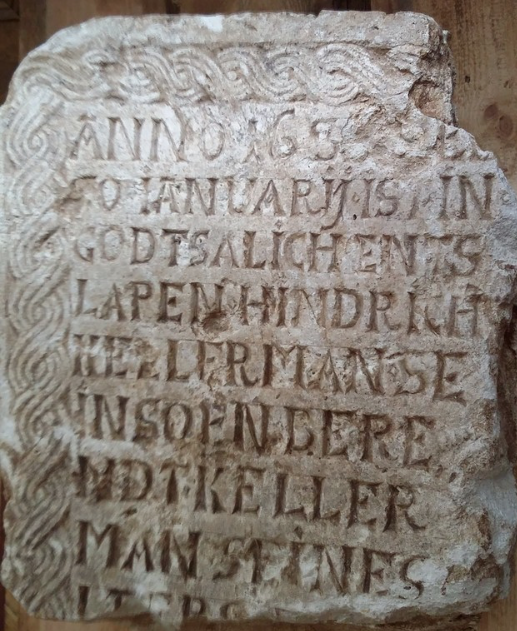 ANNO 163
IANUARIJ IS IN
GODT SALICH ENTS
LAPEN HINDRICH
KELLERMAN SE
IN SOEN BERE
NDT KELLER
MAN ST INES